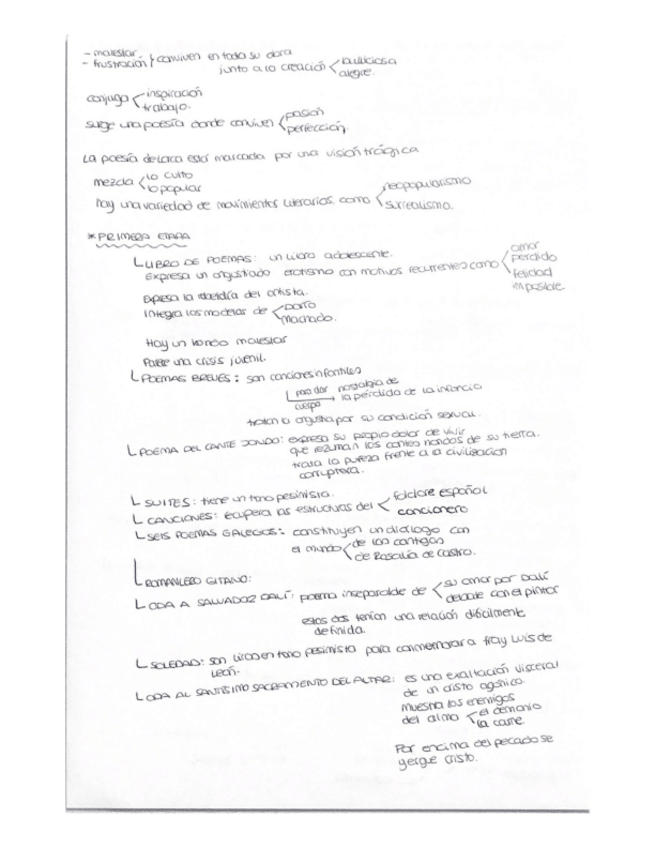 - malestar
- frustración } conviven en toda su obra
junto a la creación < bulliciosa
alegre.
conjuga < inspiración
trabajo.
surge una poesía donde conviven < pasión
perfección.
La poesía de Lorca está marcada por una visión trágica
mezcla < lo culto
lo popular
hay una variedad de movimientos literarios como < neopopularismo
surrealismo.
* PRIMERA ETAPA
LIBRO DE POEMAS: un libro adolescente.
Expresa un angustiado erotismo con motivos recurrentes como < amor
perdido
felicidad
imposible.
Expresa la rebeldía del artista.
Integra los modelos de < Darío
Machado.
Hay un hondo malestar
Padece una crisis juvenil.
POEMAS BREVES: son canciones infantiles
para dar nostalgia de
cuerpo la pérdida de la infancia
tratan la angustia por su condición sexual.
POEMA DEL CANTE JONDO: expresa su propio dolor de vivir
que rezuman los cantes hondos de su tierra.
trata la pureza frente a la civilización
corruptora.
SUITES: tiene un tono pesimista.
CANCIONES: recupera las estructuras del < folclore español
cancionero
SEIS POEMAS GALEGOS: constituyen un diálogo con
el mundo < de las cantigas
de Rosalía de Castro.
ROMANCERO GITANO:
ODA A SALVADOR DALÍ: poema inseparable de < su amor por Dalí
debate con el pintor
estos dos tenían una relación difícilmente
definida.
SOLEDAD: son liras en tono pesimista para conmemorar a fray Luis de
León.
ODA AL SANTÍSIMO SACRAMENTO DEL ALTAR: es una exaltación visceral
de un cristo agónico.
muestra los enemigos
del alma < el demonio
la carne.
Por encima del pecado se
yergue cristo.